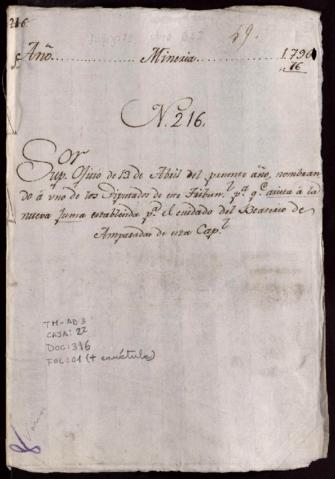 216
59.
Año. Mineria 1790
N.º 216.
Sup.or Oficio de 13 de Abril del presente año, nombran
do á vno de los Diputados de este Tribun.l p.a q.e asista á la
nueva junta establecida p.a el cuidado del Beaterio de
Amparadas de esta Cap.l
TM-AD3
CAJA: 22
DOC: 396
FOL: 01 (+ carátula)